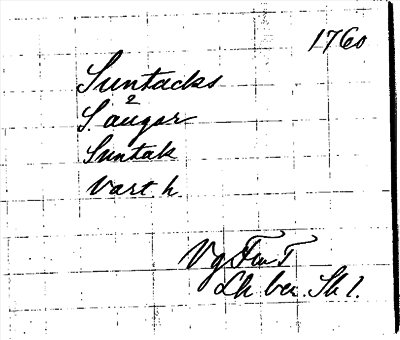 1760
Suntacks
S. ångar
Suntak
Vart h.
Vg FmT
Lh ber. Sk 1.